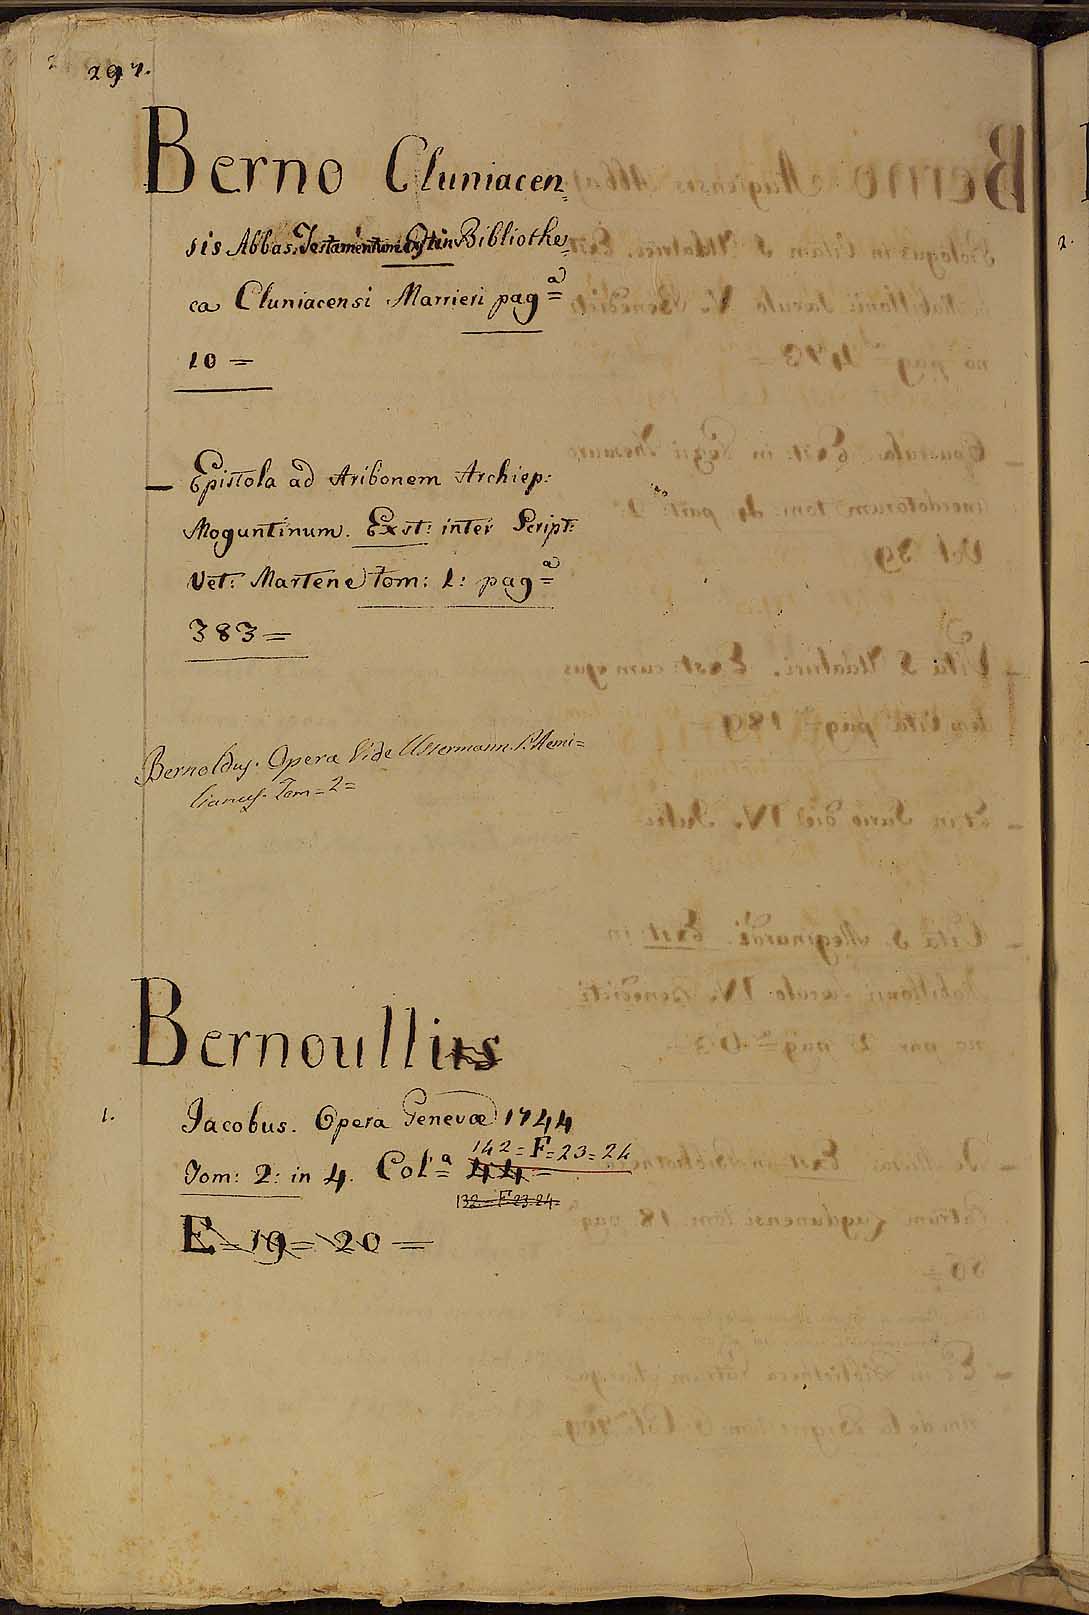 297.
Berno Cluniacen,
sis Abbas. Testamentum. Exst: in Bibliothe,
ca Cluniacensi Marrieri pagᵃ=
10 =
— Epistola ad Aribonem Archiep:
Moguntinum. Exst: inter Script:
Vet: Martene tom: 1: pagᵃ=
383 =
Bernoldus. Opera Vide Ussermann.
Tom = 2 =
Bernoullius
1. Jacobus. Opera Genevæ 1744
142 = F = 23 = 24
Tom: 2: in 4. Colᵃ= 44 =
132 = F. 23. 24.
E = 19 = 20 =
2.